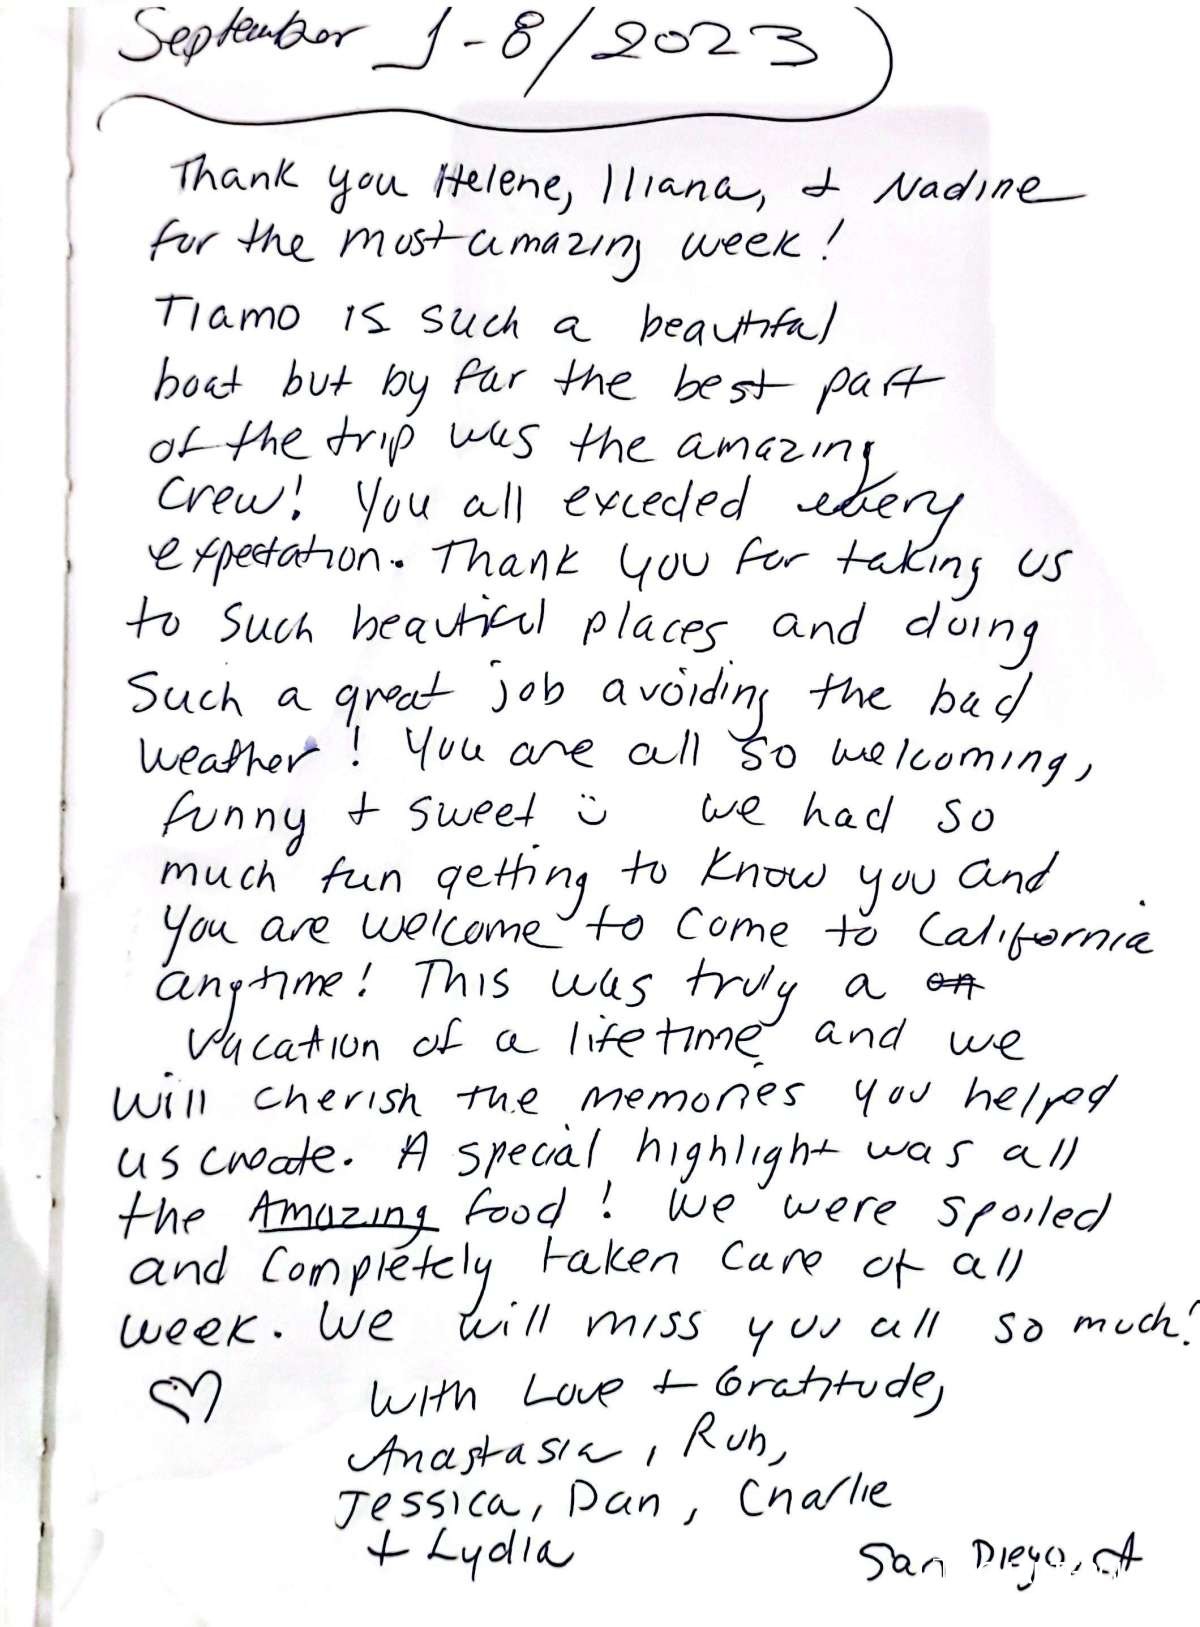 September 1-8/2023
Thank you Helene, Iliana, + Nadine
for the most amazing week!
Tiamo is such a beautiful
boat but by far the best part
of the trip was the amazing
crew! You all exceded every
expectation. Thank you for taking us
to such beautiful places and doing
such a great job avoiding the bad
weather! You are all so welcoming,
funny + sweet ü we had so
much fun getting to know you and
you are welcome to come to California
anytime! This was truly a on
vacation of a lifetime and we
will cherish the memories you helped
us create. A special highlight was all
the Amazing food! We were spoiled
and completely taken care of all
week. We will miss you all so much!
♡ With Love + Gratitude,
Anastasia, Rob,
Jessica, Dan, Charlie
+ Lydia
San Diego, CA